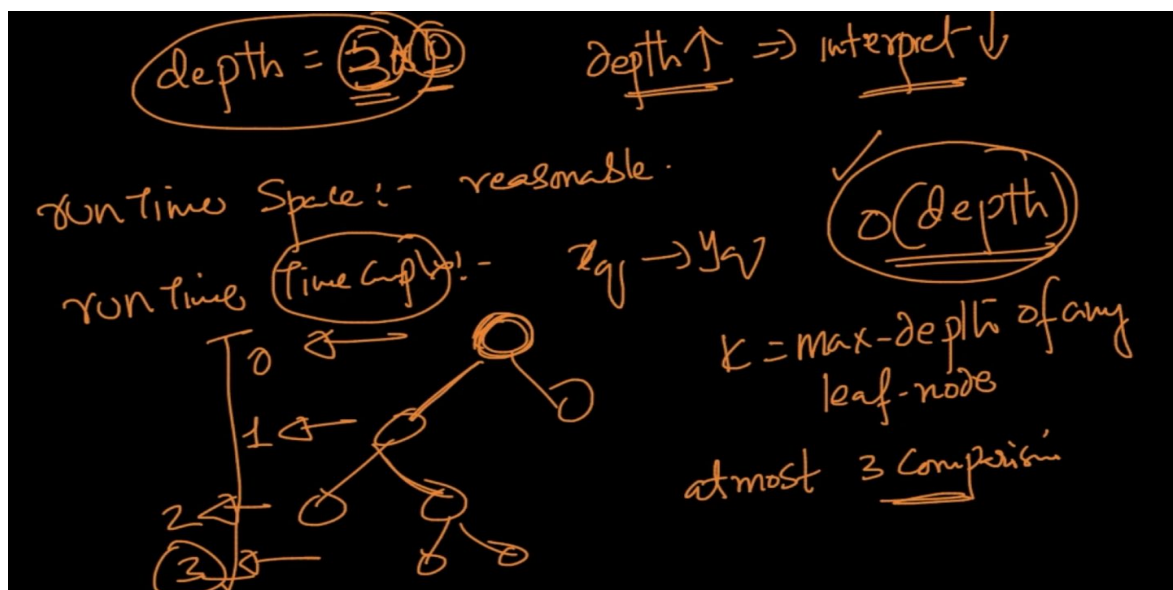 depth = 5 10
depth ↑ => interpret ↓
run time Space :- reasonable.
O(depth)
run time Time Complx :- xq → yq
0
K = max-depth of any
leaf-node
1
atmost 3 Comparisin
2
3